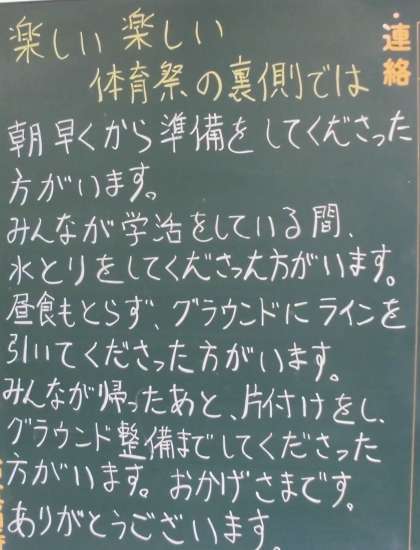 連絡
楽しい 楽しい
体育祭の裏側では
朝早くから準備をしてくださった
方がいます。
みんなが学活をしている間、
水とりをしてくださった方がいます。
昼食もとらず、グラウンドにラインを
引いてくださった方がいます。
みんなが帰ったあと、片付けをし、
グラウンド整備までしてくださった
方がいます。おかげさまです。
ありがとうございます。